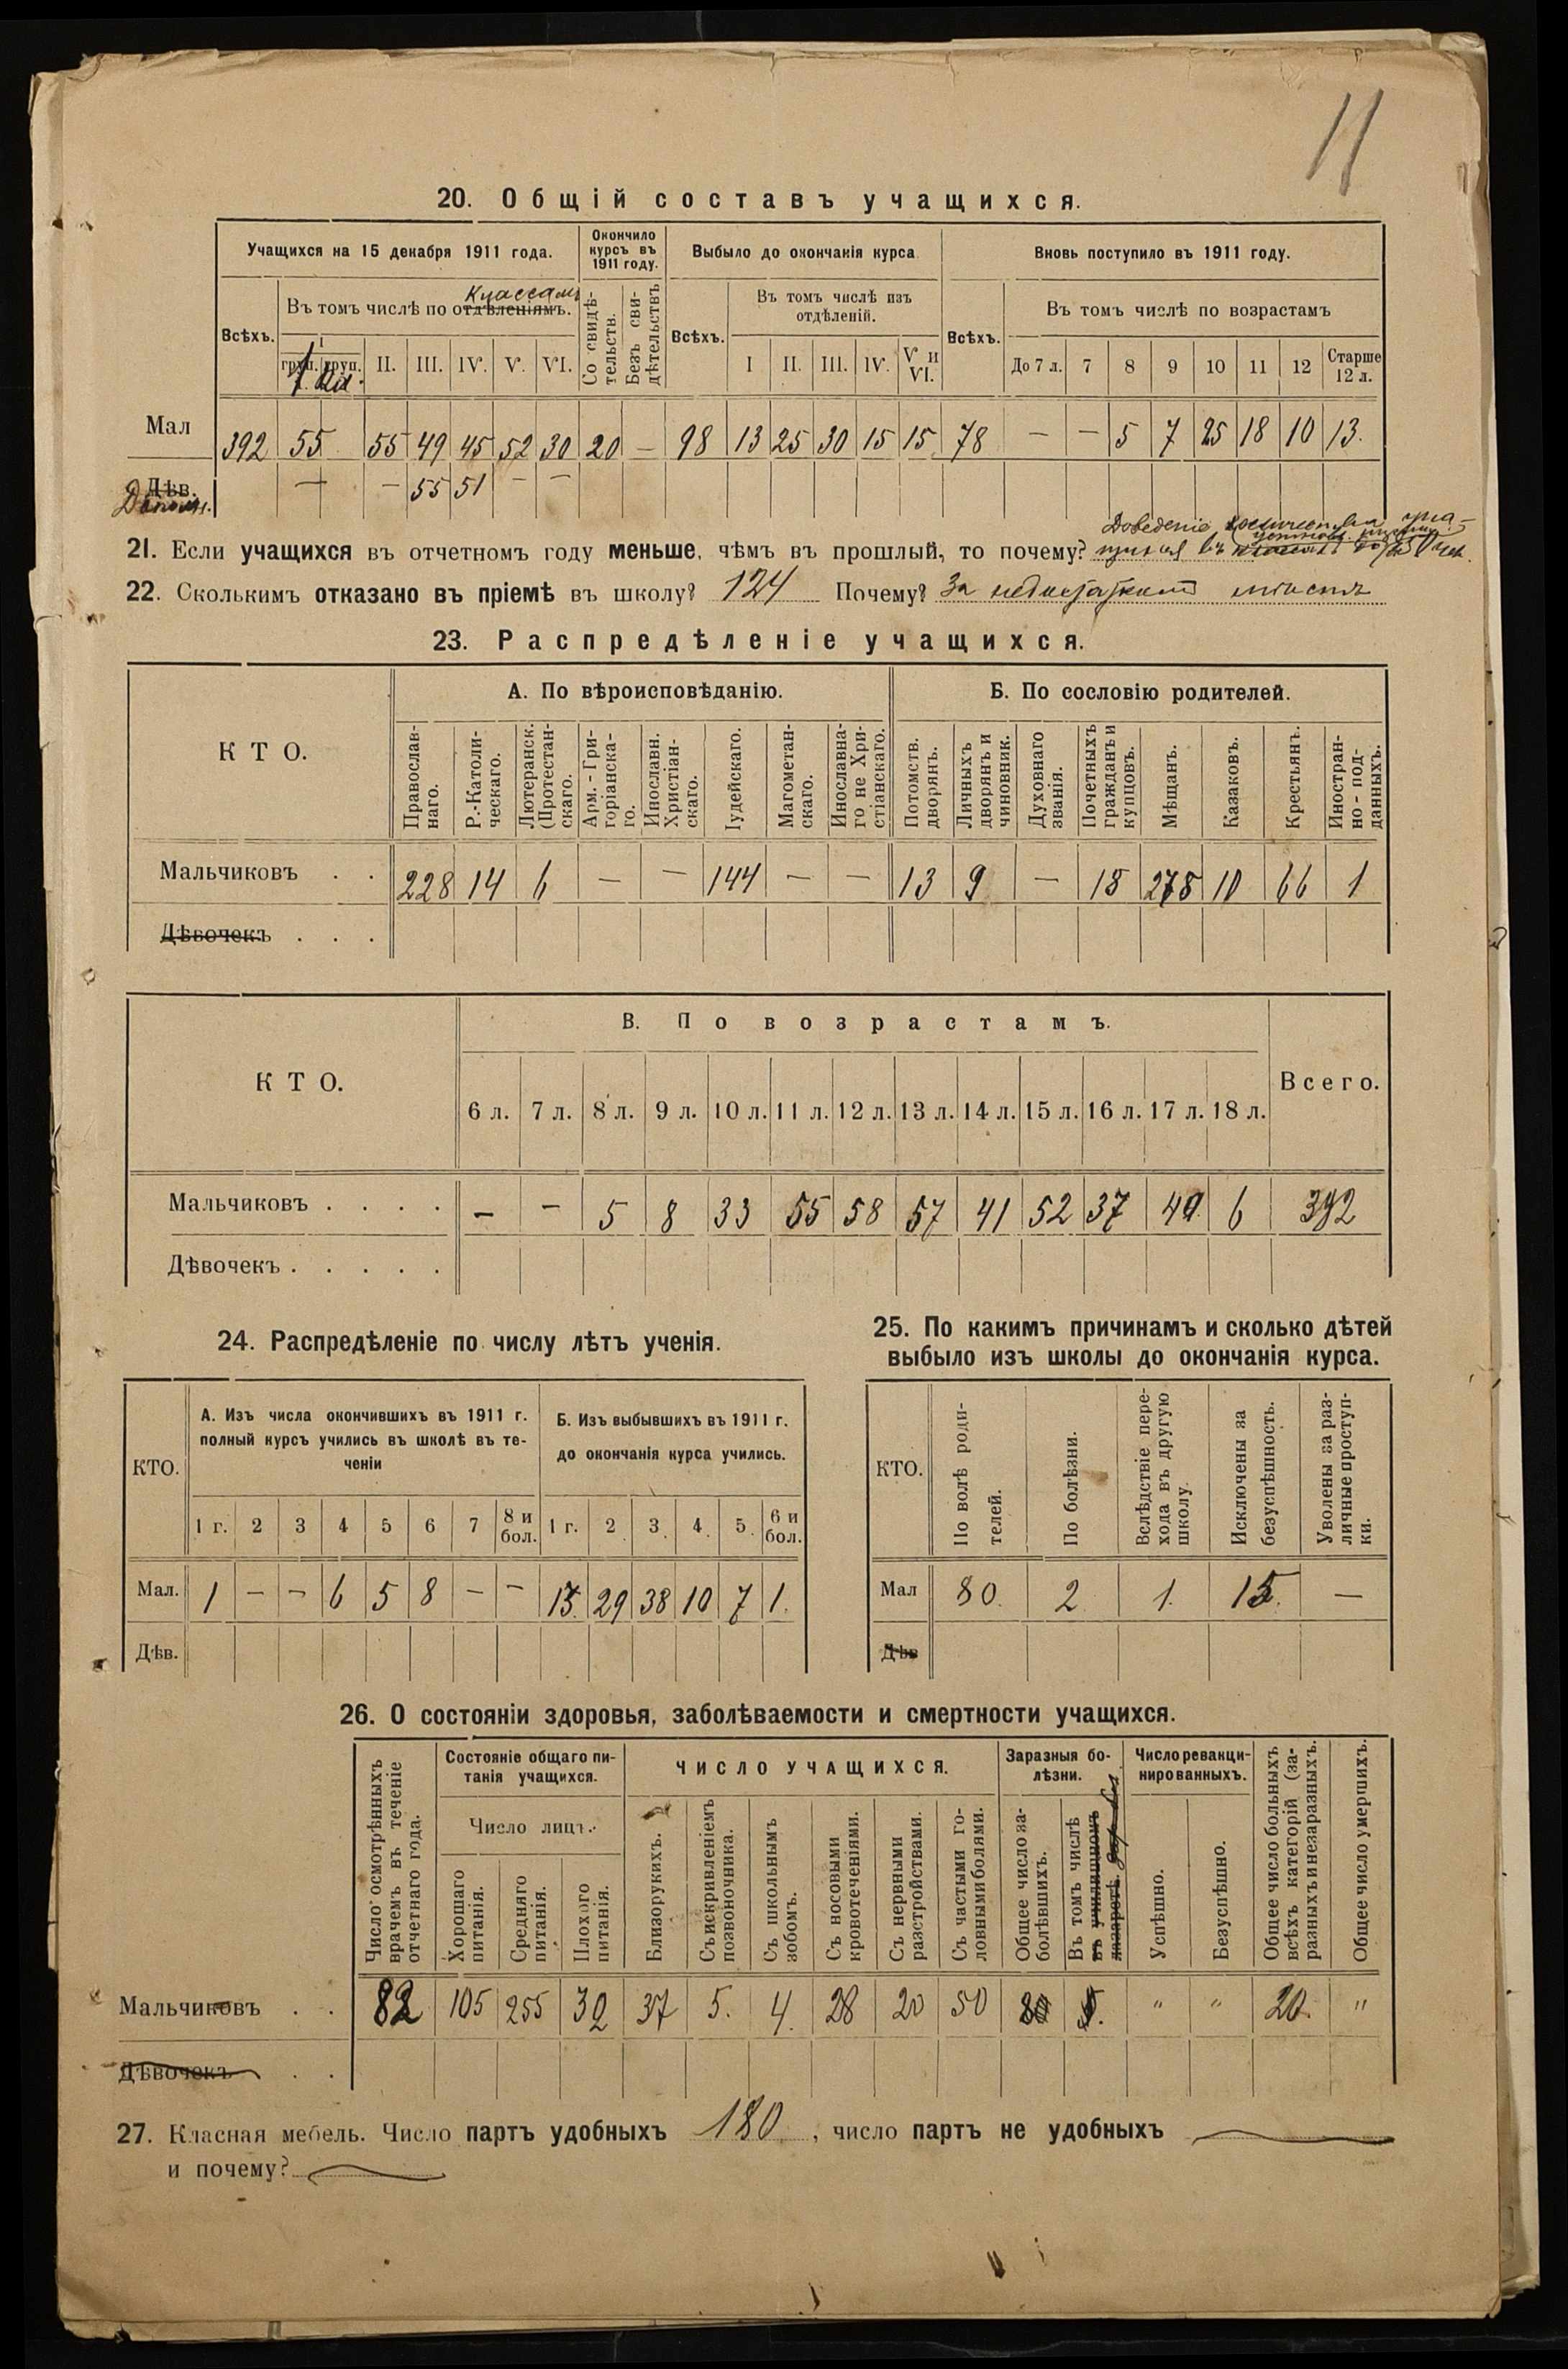 11
20. Общій составъ учащихся.
Учащихся на 15 декабря 1911 года. Окончило курсъ въ 1911 году. Выбыло до окончанія курса Вновь поступило въ 1911 году.
Всѣхъ. Въ томъ числѣ по отдѣленіямъ. классамъ Со свидѣ-тельств. Безъ сви-дѣтельствъ Всѣхъ. Въ томъ числѣ изъ отдѣленій. Всѣхъ. Въ томъ числѣ по возрастамъ
I груп. груп. I кл. II. III. IV. V. VI. I II. III. IV. V и VI. До 7 л. 7 8 9 10 11 12 Старше 12 л.
Мал 392 55 55 49 45 52 30 20 — 98 13 25 30 15 15 78 — — 5 7 25 18 10 13.
Дѣв. — — 55 51 — —
21. Если учащихся въ отчетномъ году меньше, чѣмъ въ прошлый, то почему? Доведеніе количества уча-
щихся въ
22. Сколькимъ отказано въ пріемѣ въ школу? 124 Почему? За недостаткомъ мѣста
23. Распредѣленіе учащихся.
КТО. А. По вѣроисповѣданію. Б. По сословію родителей.
Православ-наго. Р.-Католи-ческаго. Лютеранск. (Протестан-скаго. Арм.-Гри-горіанска-го. Инославн. Христіан-скаго. Іудейскаго. Магометан-скаго. Инославна-го не Хри-стіанскаго. Потомств. дворянъ. Личныхъ дворянъ и чиновник. Духовнаго званія. Почетныхъ гражданъ и купцовъ. Мѣщанъ. Казаковъ. Крестьянъ. Иностран-но-под-данныхъ.
Мальчиковъ . . 228 14 6 — — 144 — — 13 9 — 15 278 10 66 1
Дѣвочекъ . . .
КТО. В. По возрастамъ. Всего.
6 л. 7 л. 8 л. 9 л. 10 л. 11 л. 12 л. 13 л. 14 л. 15 л. 16 л. 17 л. 18 л.
Мальчиковъ . . . . — — 5 8 33 55 58 57 41 52 37 40 6 392
Дѣвочекъ . . . . .
24. Распредѣленіе по числу лѣтъ ученія.
КТО. А. Изъ числа окончившихъ въ 1911 г. полный курсъ учились въ школѣ въ те-ченіи Б. Изъ выбывшихъ въ 1911 г. до окончанія курса учились.
1 г. 2 3 4 5 6 7 8 и бол. 1 г. 2 3. 4. 5. 6 и бол.
Мал. 1 — — 6 5 8 — — 13. 29 38 10 7 1.
Дѣв.
25. По какимъ причинамъ и сколько дѣтей
выбыло изъ школы до окончанія курса.
КТО. По волѣ роди-телей. По болѣзни. Вслѣдствіе пере-хода въ другую школу. Исключены за безуспѣшность. Уволены за раз-личные проступ-ки.
Мал 80. 2. 1. 15. —
Дѣв
26. О состояніи здоровья, заболѣваемости и смертности учащихся.
Число осмотрѣнныхъ врачемъ въ теченіе отчетнаго года. Состояніе общаго пи-танія учащихся. ЧИСЛО УЧАЩИХСЯ. Заразныя бо-лѣзни. Число ревакци-нированныхъ. Общее число больныхъ всѣхъ категорій (за-разныхъ и незаразныхъ. Общее число умершихъ.
Число лицъ.
Хорошаго питанія. Средняго питанія. Плохого питанія. Близорукихъ. Съ искривленіемъ позвоночника. Съ школьнымъ зобомъ. Съ носовыми кровотеченіями. Съ нервными разстройствами. Съ частыми го-ловными болями. Общее число за-болѣвшихъ. Въ томъ числѣ въ училищномъ лазаретѣ. Успѣшно. Безуспѣшно.
Мальчиковъ . . 82 105 255 32 37 5. 4. 28 20 50 " " 20. "
Дѣвочекъ . .
27. Класная мебель. Число партъ удобныхъ 180, число партъ не удобныхъ —
и почему? —